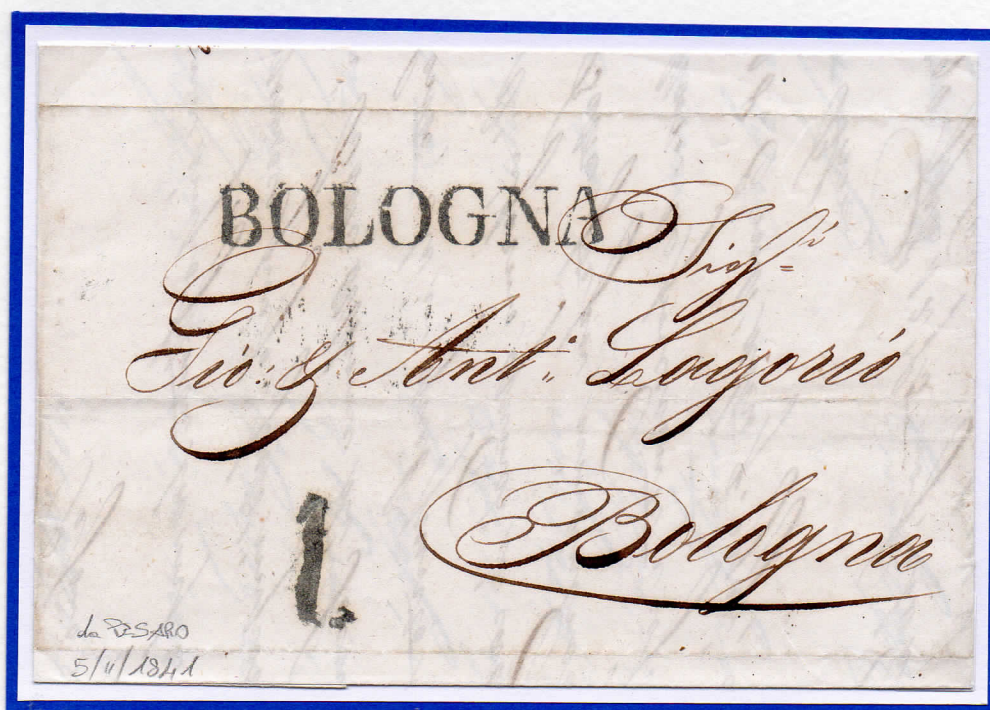 BOLOGNA
Sig.ri
Gio: & Ant.: Lagorio
Bologna
1.
da PESARO
5/11/1841